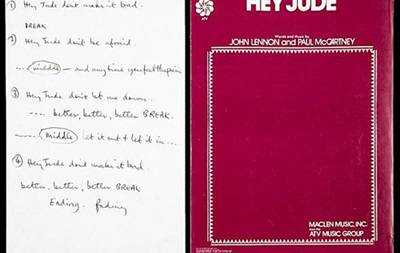 ① Hey Jude dont make it bad.
BREAK
② Hey Jude dont be afraid
.... middle — and any time you feel the pain
③ Hey Jude dont let me down..
---- better, better, better BREAK.
---- middle let it out & let it in ...
④ Hey Jude dont make it bad
better, better, better BREAK
Ending. fading
ATV
HEY JUDE
Words and Music by
JOHN LENNON and PAUL McCARTNEY
MACLEN MUSIC, INC.
ATV MUSIC GROUP